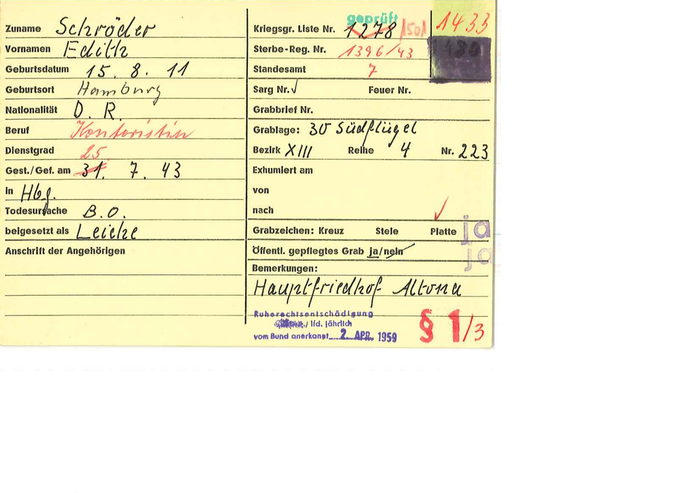 Zuname Schröder
Vornamen Edith
Geburtsdatum 15. 8. 11
Geburtsort Hamburg
Nationalität D. R.
Beruf Kontoristin
Dienstgrad
25.
Gest./Gef. am 31. 7. 43
in Hbg.
Todesursache B.O.
beigesetzt als Leiche
Anschrift der Angehörigen
geprüft
Kriegsgr. Liste Nr. 1278 /501
1433
Sterbe-Reg. Nr. 1396/43
Standesamt 7
Sarg Nr. Feuer Nr.
Grabbrief Nr.
Grablage: 30 Südflügel
Bezirk XIII Reihe 4 Nr. 223
Exhumiert am
von
nach
Grabzeichen: Kreuz Stele Platte
ja
ja
Öffentl. gepflegtes Grab ja/nein
Bemerkungen:
Hauptfriedhof Altona
Ruherechtsentschädigung
/ lfd. jährlich
vom Bund anerkannt 2. APR. 1959
§ 1/3